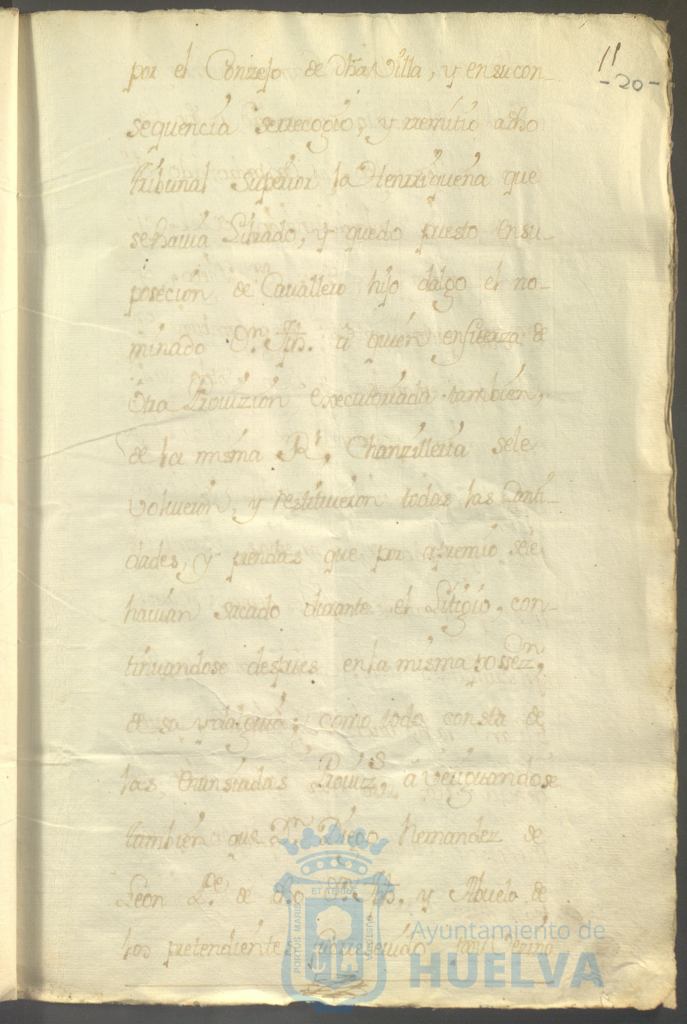 11
-20-
por el Conzejo de dha Villa, y en su con-
sequencia se recogio, y remitio a dho
tribunal Superior la Henriqueña que
se havia Librado, y quedo puesto en su
posecion de Cavallero hijo dalgo el no-
minado Dn. Jph. a quien en fuerza de
otra Provizion executoriada tambien,
de la misma Rl. Chanzilleria se le
volvieron, y restituieron todas las Canti-
dades, y prendas que por apremio se le
havian sacado durante el Litigio, con-
tinuandose despues en la misma possezn.
de su ydalguia; como todo consta de
las enunsiadas Provizs. averiguandose
tambien que Dn. Diego Hernandez de
Leon Pe. de dho Dn. Jph., y Abuelo de
los pretendientes
PORTUS MARIS
Ayuntamiento de
HUELVA